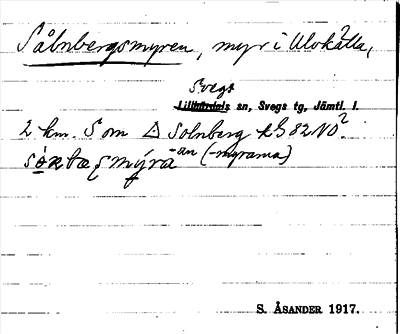 Sålnbergsmyren, myr i Ulvkälla,
Svegs
Lillhärdals sn, Svegs tg, Jämtl. l.
2 km. S om △ Solnberg k G 82 NO?
-an (-myrama)
S. ÅSANDER 1917.